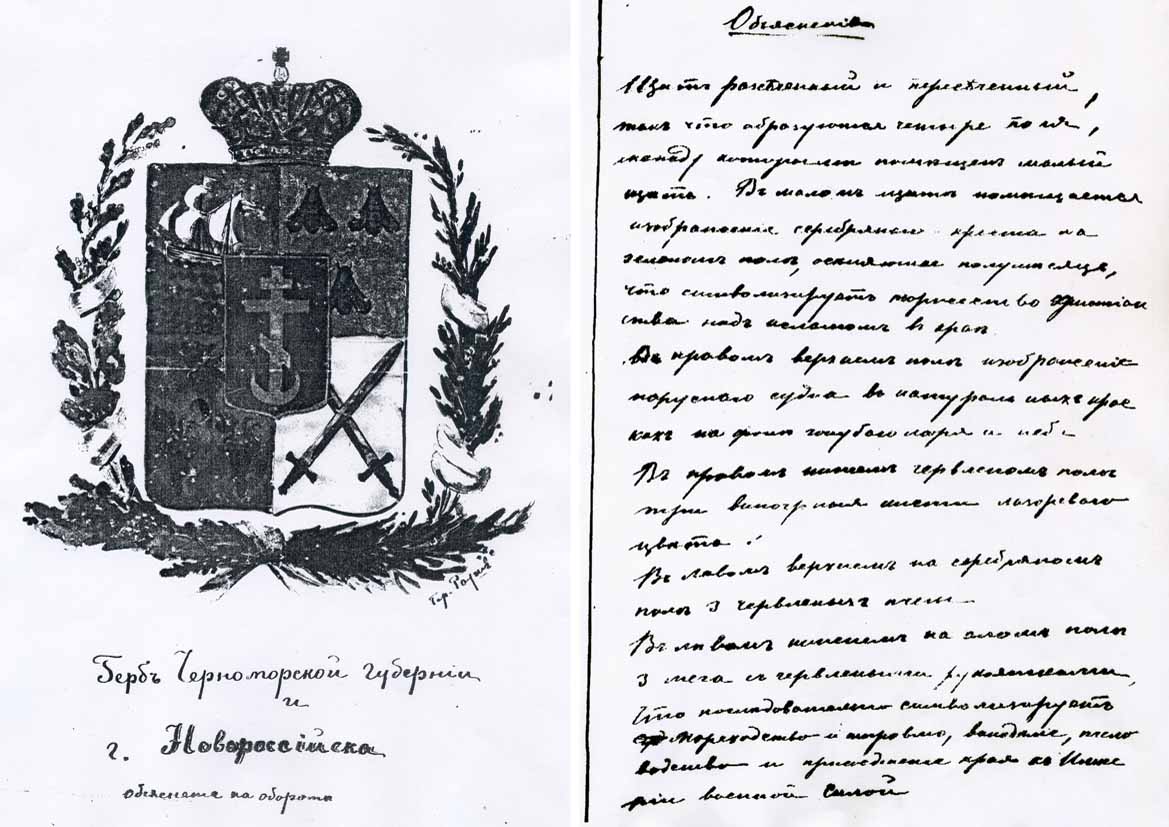 Гербъ Черноморской губерніи
и
г. Новороссійска
на оборотѣ
Объясненіе
Щитъ разсѣченный и пересѣченный,
такъ что образуются четыре поля,
которыми помѣщенъ малый
щитъ. Въ маломъ щитѣ помѣщается
изображеніе серебрянаго креста на
зеленомъ полѣ, полумѣсяцъ,
что символизируетъ торжество христіан
ства надъ исламомъ въ краѣ.
Въ правомъ верхнемъ полѣ изображеніе
паруснаго судна въ натуральныхъ крас
кахъ на фонѣ голубого моря и неба
Въ правомъ нижнемъ червленомъ полѣ
три кисти лазореваго
цвѣта.
Въ лѣвомъ верхнемъ на серебряномъ
полѣ 3 червленыхъ пчелы
Въ лѣвомъ нижнемъ на полѣ
3 меча съ червлеными рукоятками,
что послѣдовательно символизируетъ
мореходство и торговлю, винодѣліе, пчело
водство и присоединеніе края къ Импе
ріи военной силой